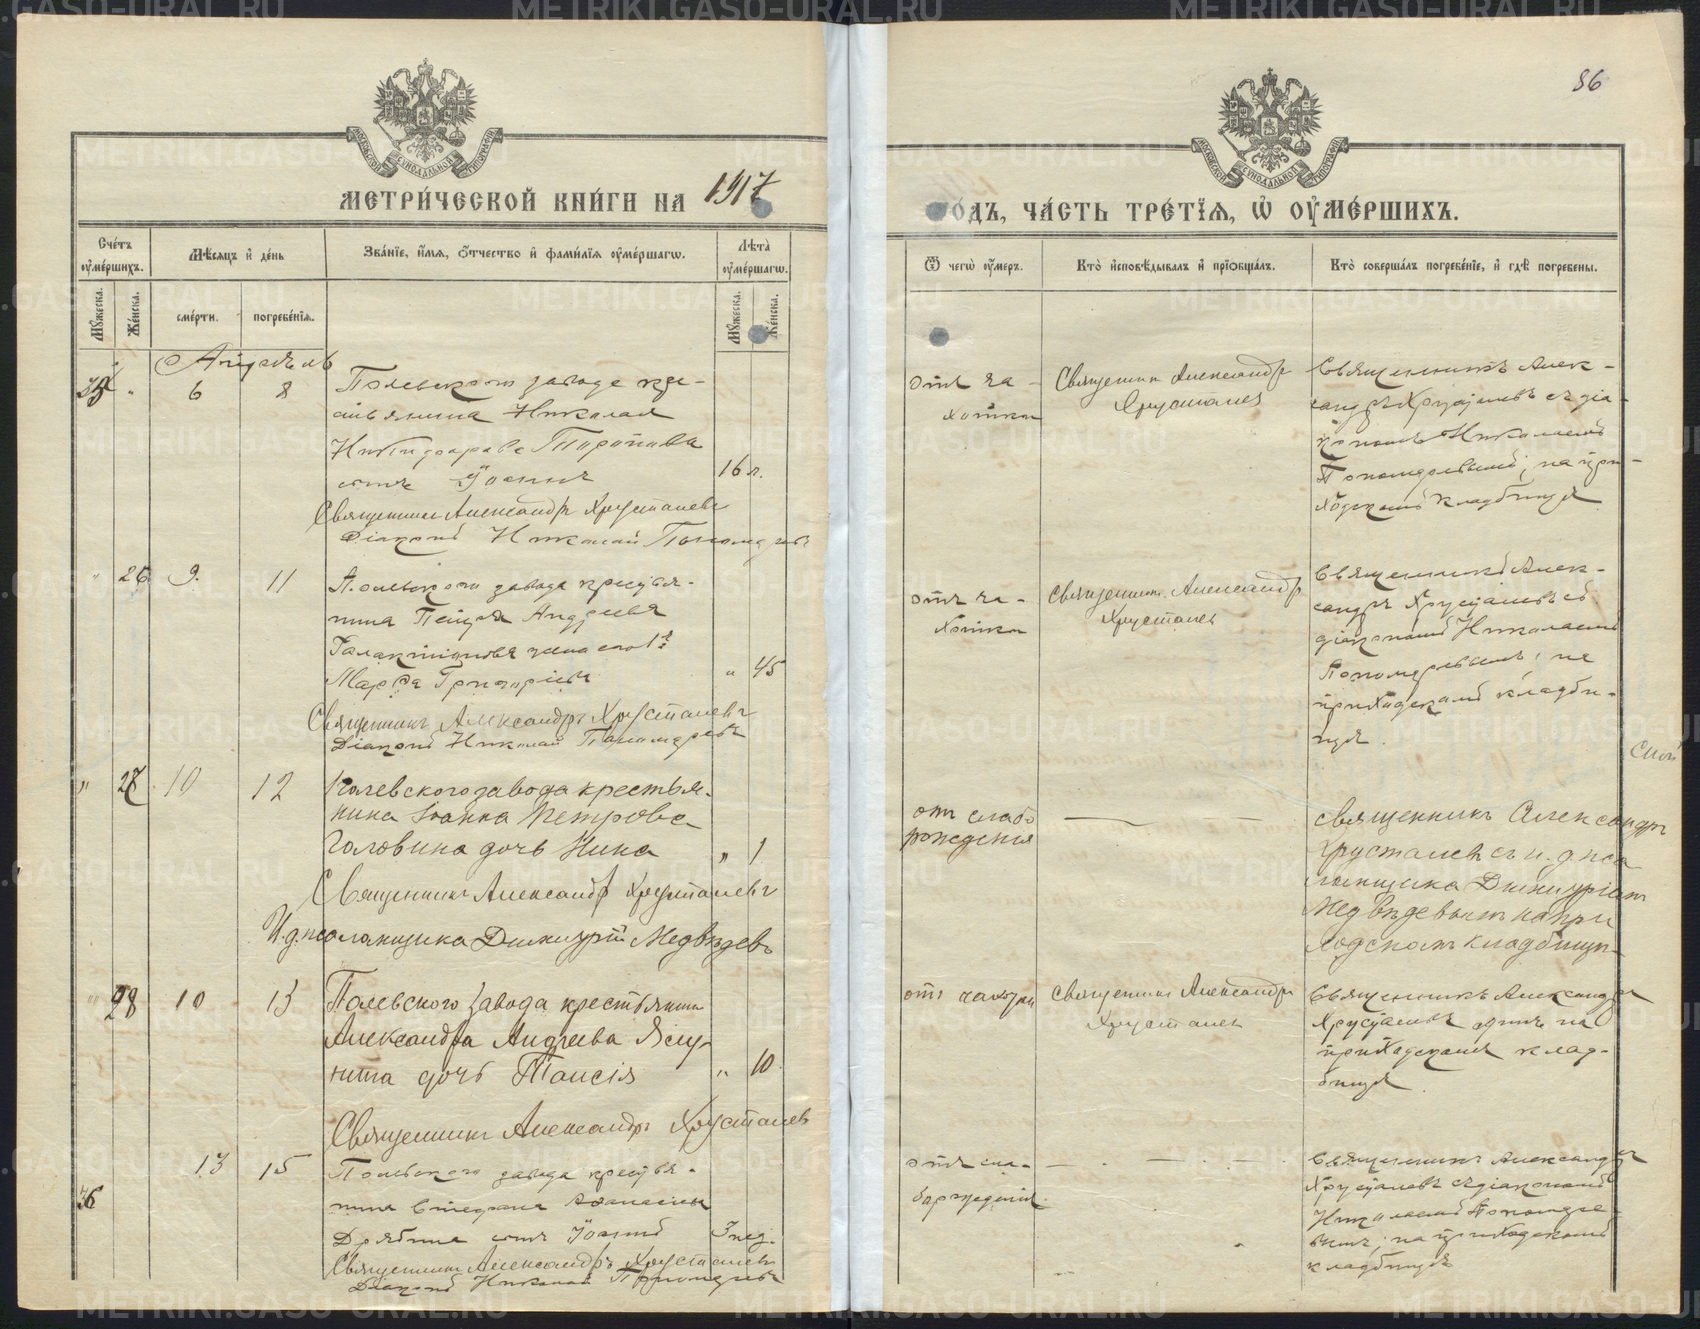 86
МЕТРИ́ЧЕСКОЙ КНИ́ГИ НА 1917
ГО́ДЪ, ЧА́СТЬ ТРЕ́ТІѦ, Ѡ ОУМЕ́РШИХЪ.
Сче́тъ оумéршихъ.
Мѣсяцъ и де́нь
Зва́ніе, имя, отчество и фами́лія оумéршагѡ.
Лѣта̀ оумéршагѡ.
Мꙋжеска.
Же́нска.
сме́рти.
погребе́нія.
Мꙋжеска.
Же́нска.
Ѿ чегѡ̀ оумеръ.
Кто̀ исповѣдывалъ и пріобща́лъ.
Кто̀ соверша́лъ погребе́ніе, и гдѣ̀ погребены.
Апрѣль
35 " 6 8
Полевского завода кре-
стьянина Николая
Никифорова Торопова
сынъ Іоаннъ 16 л.
Священникъ Александръ Хрусталевъ
Діаконъ Николай Пономаревъ
отъ ча-
хотки
Священникъ Александръ
Хрусталевъ
Священникъ Алек-
сандръ Хрусталевъ съ діа-
кономъ Николаемъ
Пономаревымъ, на при-
ходскомъ кладбищѣ
" 26 9. 11
Полевского завода крестья-
нина Петра Андреева
Галактіонова жена его
Марѳа Григорьева " 45
Священникъ Александръ Хрусталевъ
Діаконъ Николай Пономаревъ
отъ ча-
хотки
Священникъ Александръ
Хрусталевъ
Священникъ Алек-
сандръ Хрусталевъ съ
діакономъ Николаемъ
Пономаревымъ, на
приходскомъ кладби-
щѣ.
" 27 10 12
Полевского завода крестья-
нина Іоанна Петрова
Головина дочь Нина " 1
Священникъ Александръ Хрусталевъ
И.д. псаломщика Димитрій Медвѣдевъ
отъ слабо
рожденія
Священникъ Александръ
Хрусталевъ съ и.д. пса
ломщика Димитріем
Медвѣдевымъ на при
ходскомъ кладбищѣ.
" 28 10 13
Полевского завода крестьянина
Александра Андреева
дочь Таисія " 10
Священникъ Александръ Хрусталевъ
отъ чахотки
Священникъ Александръ
Хрусталевъ
Священникъ Александръ
Хрусталевъ одинъ на
приходскомъ клад-
бищѣ
36 13 15
Полевского завода крестья-
нина Стефана Аѳанасьева
сынъ Іоаннъ 3 нед.
Священникъ Александръ Хрусталевъ
Діаконъ Николай Пономаревъ
отъ сла-
борожденія.
Священникъ Александръ
Хрусталевъ съ діакономъ
Николаемъ Пономаре-
вымъ, на приходскомъ
кладбищѣ
METRIKI.GASO-URAL.RU